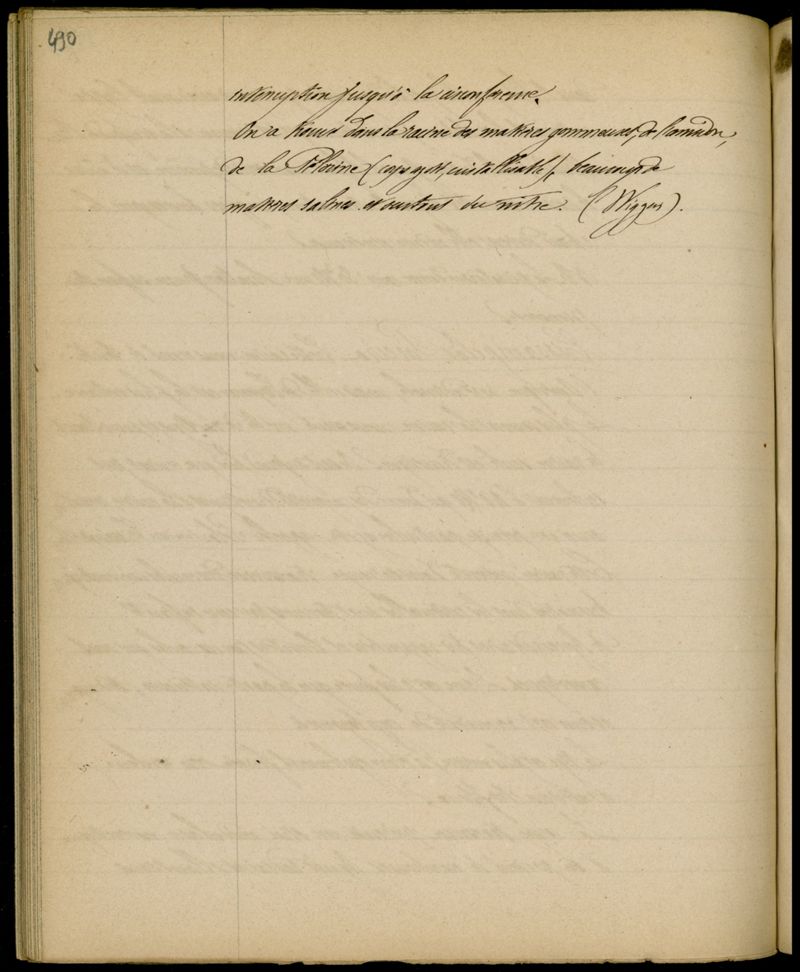 490
interruption jusqu'à la circonférence.
On a trouvé dans la racine des matières gommeuses, de l'amidon,
de la (corps gras, cristallisable), beaucoup de
matières salines et surtout du nitre. (Wiggers).